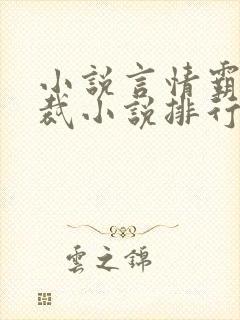 小說言情霸
裁小說排行
雲之錦